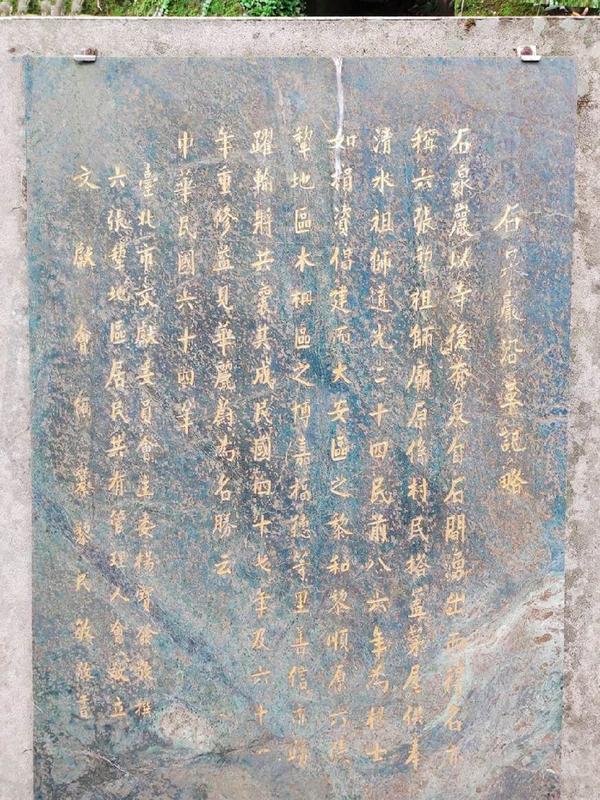 石泉巖沿革記略
石泉巖以寺後有泉自石間湧出而得名亦
稱六張犂祖師廟原係村民搭蓋茅屋供奉
清水祖師道光二十四民前八六年為棋士
如捐資倡建而大安區之黎和黎順原六張
犂地區木柵區之博嘉福德等里善信亦踴
躍輸將共襄其成民國四十七年及六十一
年重修益見華麗蔚為名勝云
中華民國六十四年
臺北市文獻委員會主委楊寶發撰
六張犂地區居民共有管理人會敬立
文獻會編纂黎民敬書